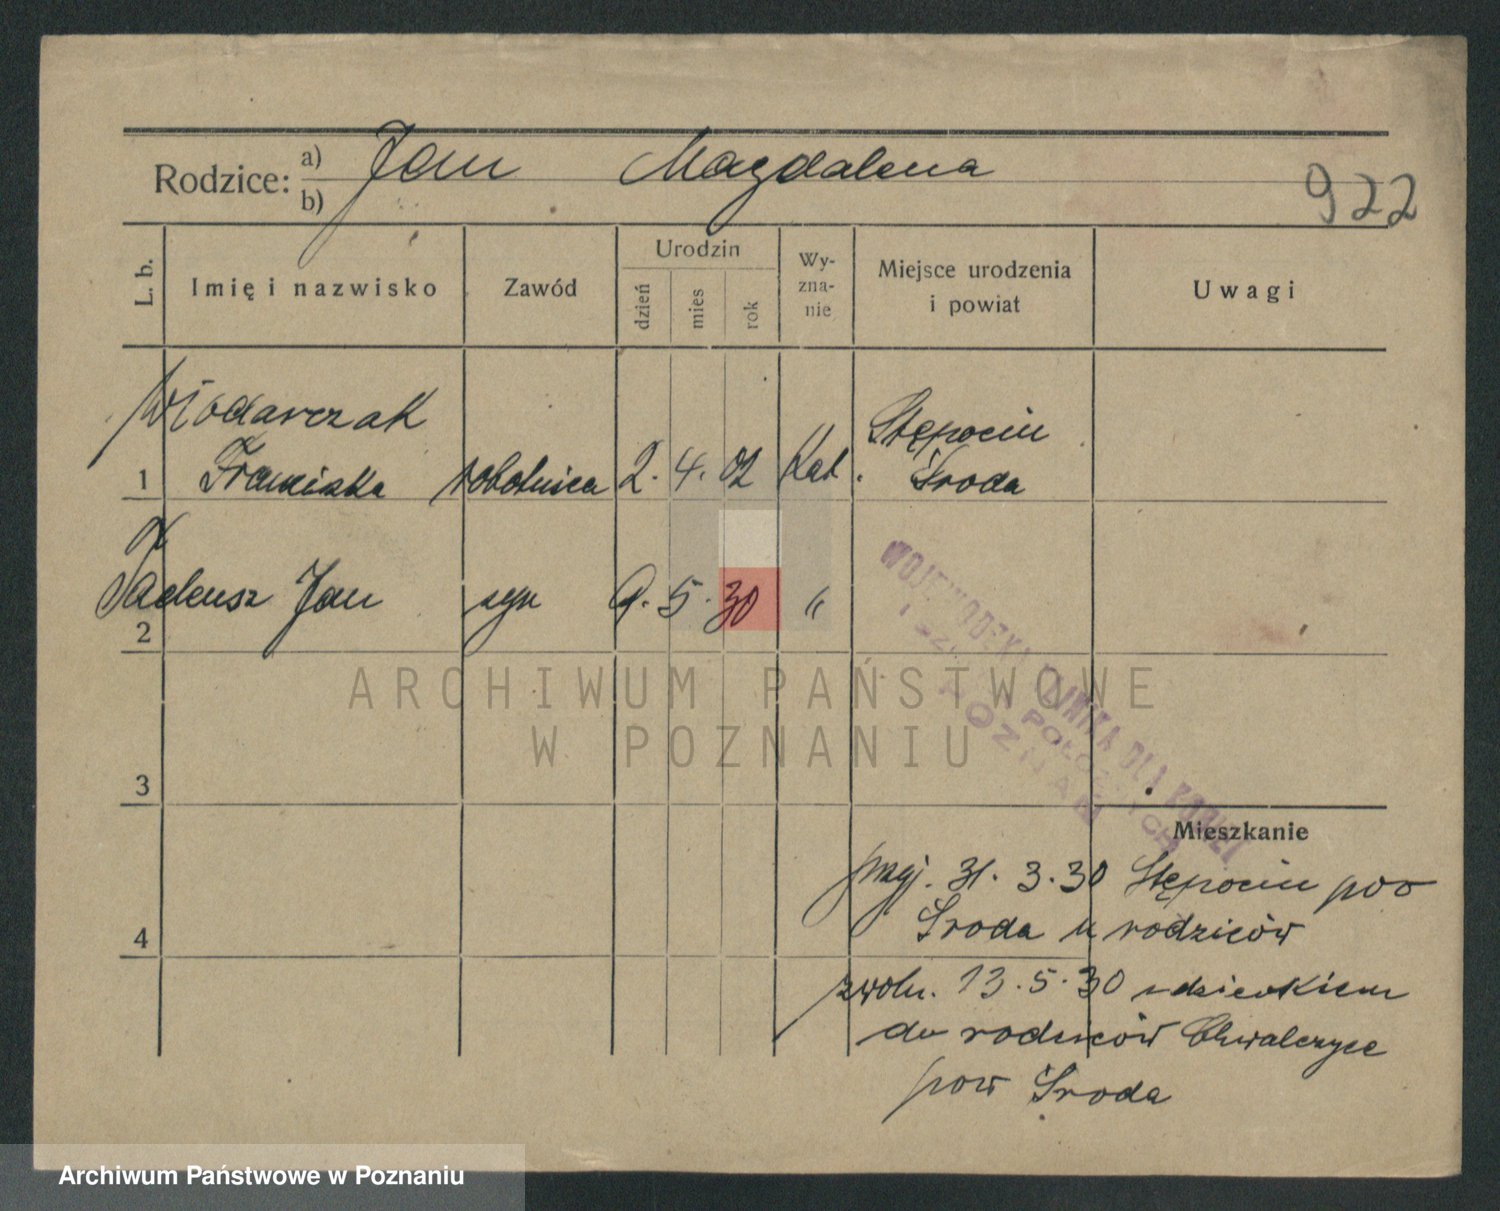 Rodzice: a) Jan Magdalena
b)
922
L. b. Imię i nazwisko Zawód Urodzin dzień mies rok Wy-zna-nie Miejsce urodzenia i powiat Uwagi
Włodarczak
1 Franciszka robotnica 2. 4. 02 Kat. Stępocin Środa
Tadeusz Jan syn 9. 5. 30 "
2
WOJEWÓDZKA KLINIKA DLA KOBIET
I SZKOŁA POŁOŻNYCH
POZNAŃ
ARCHIWUM PAŃSTWOWE
W POZNANIU
3
Mieszkanie
przyj. 31. 3. 30 Stępocin pow
4 Środa u rodziców
zwoln. 13. 5. 30 z dzieckiem
do rodziców Chwalczyce
pow Środa
Archiwum Państwowe w Poznaniu